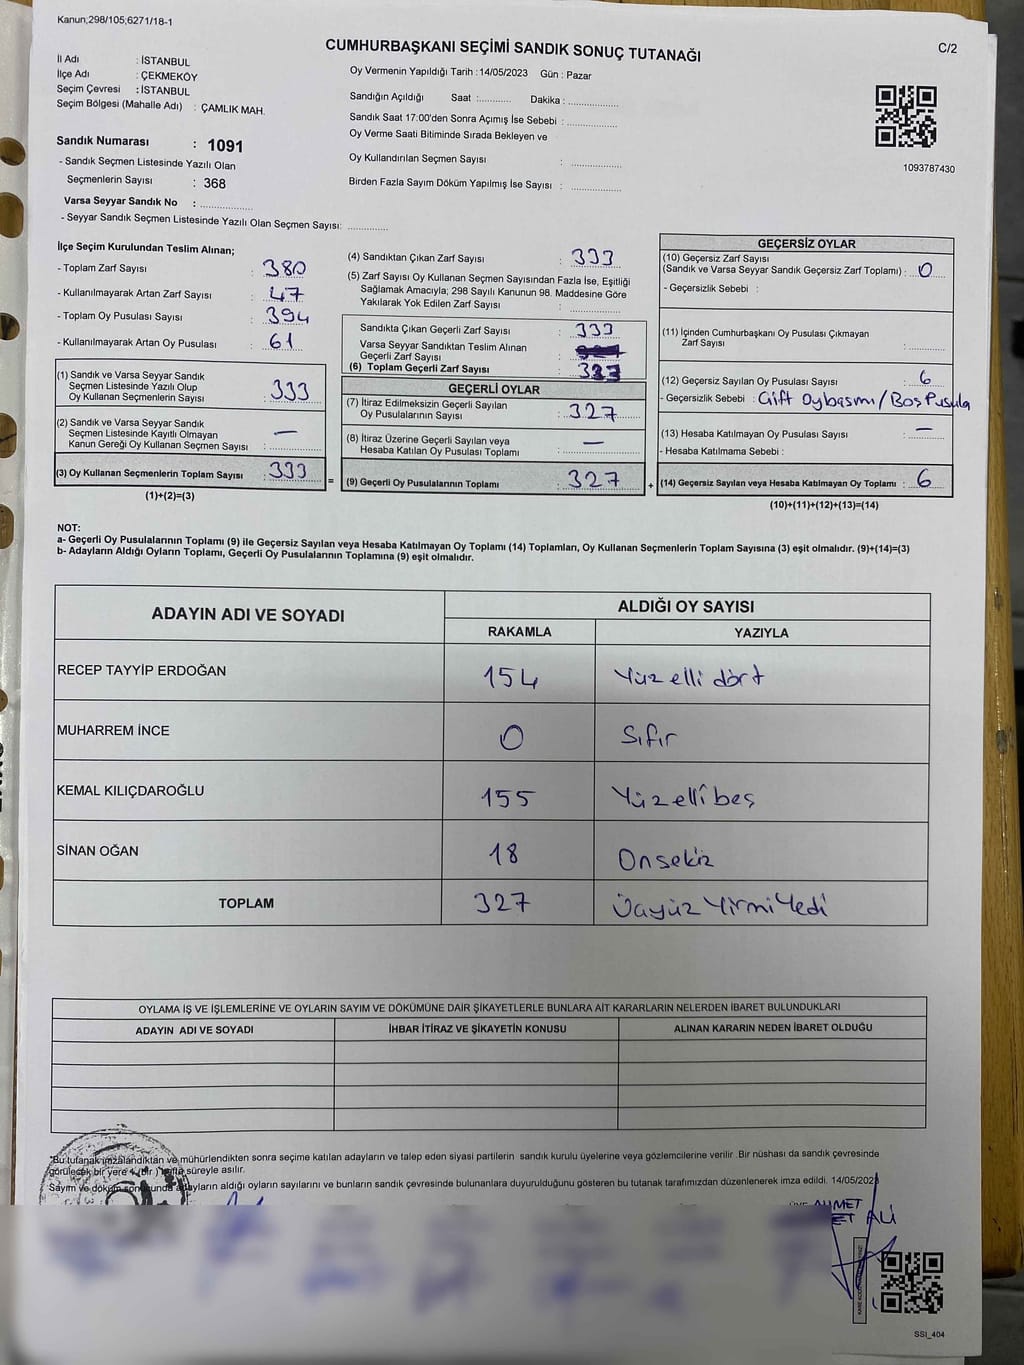 Kanun;298/105;6271/18-1
C/2
CUMHURBAŞKANI SEÇİMİ SANDIK SONUÇ TUTANAĞI
İl Adı : İSTANBUL
İlçe Adı : ÇEKMEKÖY
Seçim Çevresi : İSTANBUL
Seçim Bölgesi (Mahalle Adı) : ÇAMLIK MAH.
Sandık Numarası : 1091
- Sandık Seçmen Listesinde Yazılı Olan
Seçmenlerin Sayısı : 368
Varsa Seyyar Sandık No : ..............
- Seyyar Sandık Seçmen Listesinde Yazılı Olan Seçmen Sayısı: ..............
Oy Vermenin Yapıldığı Tarih : 14/05/2023 Gün : Pazar
Sandığın Açıldığı Saat :........... Dakika : ................
Sandık Saat 17:00'den Sonra Açımış İse Sebebi : ................
Oy Verme Saati Bitiminde Sırada Bekleyen ve
Oy Kullandırılan Seçmen Sayısı : ................
Birden Fazla Sayım Döküm Yapılmış İse Sayısı : ................
1093787430
İlçe Seçim Kurulundan Teslim Alınan;
- Toplam Zarf Sayısı : 380
- Kullanılmayarak Artan Zarf Sayısı : 47
- Toplam Oy Pusulası Sayısı : 394
- Kullanılmayarak Artan Oy Pusulası : 61
(1) Sandık ve Varsa Seyyar Sandık
Seçmen Listesinde Yazılı Olup
Oy Kullanan Seçmenlerin Sayısı : 333
(2) Sandık ve Varsa Seyyar Sandık
Seçmen Listesinde Kayıtlı Olmayan
Kanun Gereği Oy Kullanan Seçmen Sayısı : —
(3) Oy Kullanan Seçmenlerin Toplam Sayısı : 333
(1)+(2)=(3)
=
(4) Sandıktan Çıkan Zarf Sayısı : 333
(5) Zarf Sayısı Oy Kullanan Seçmen Sayısından Fazla İse, Eşitliği
Sağlamak Amacıyla; 298 Sayılı Kanunun 98. Maddesine Göre
Yakılarak Yok Edilen Zarf Sayısı : ..............
Sandıkta Çıkan Geçerli Zarf Sayısı : 333
Varsa Seyyar Sandıktan Teslim Alınan
Geçerli Zarf Sayısı :
(6) Toplam Geçerli Zarf Sayısı : 333
GEÇERLİ OYLAR
(7) İtiraz Edilmeksizin Geçerli Sayılan
Oy Pusulalarının Sayısı : 327
(8) İtiraz Üzerine Geçerli Sayılan veya
Hesaba Katılan Oy Pusulası Toplamı : —
(9) Geçerli Oy Pusulalarının Toplamı : 327
+
GEÇERSİZ OYLAR
(10) Geçersiz Zarf Sayısı
(Sandık ve Varsa Seyyar Sandık Geçersiz Zarf Toplamı) : 0
- Geçersizlik Sebebi :
(11) İçinden Cumhurbaşkanı Oy Pusulası Çıkmayan
Zarf Sayısı : ..........
(12) Geçersiz Sayılan Oy Pusulası Sayısı : 6
- Geçersizlik Sebebi : Çift Oybasmı / Boş Pusula
(13) Hesaba Katılmayan Oy Pusulası Sayısı : —
- Hesaba Katılmama Sebebi :
(14) Geçersiz Sayılan veya Hesaba Katılmayan Oy Toplamı : 6
(10)+(11)+(12)+(13)=(14)
NOT:
a- Geçerli Oy Pusulalarının Toplamı (9) ile Geçersiz Sayılan veya Hesaba Katılmayan Oy Toplamı (14) Toplamları, Oy Kullanan Seçmenlerin Toplam Sayısına (3) eşit olmalıdır. (9)+(14)=(3)
b- Adayların Aldığı Oyların Toplamı, Geçerli Oy Pusulalarının Toplamına (9) eşit olmalıdır.
ADAYIN ADI VE SOYADI
ALDIĞI OY SAYISI
RAKAMLA YAZIYLA
RECEP TAYYİP ERDOĞAN 154 Yüzelli dört
MUHARREM İNCE 0 Sıfır
KEMAL KILIÇDAROĞLU 155 Yüzellibeş
SİNAN OĞAN 18 Onsekiz
TOPLAM 327 Üçyüz Yirmi Yedi
OYLAMA İŞ VE İŞLEMLERİNE VE OYLARIN SAYIM VE DÖKÜMÜNE DAİR ŞİKAYETLERLE BUNLARA AİT KARARLARIN NELERDEN İBARET BULUNDUKLARI
ADAYIN ADI VE SOYADI İHBAR İTİRAZ VE ŞİKAYETİN KONUSU ALINAN KARARIN NEDEN İBARET OLDUĞU
"Bu tutanak imzalandıktan ve mühürlendikten sonra seçime katılan adayların ve talep eden siyasi partilerin sandık kurulu üyelerine veya gözlemcilerine verilir .Bir nüshası da sandık çevresinde
görülecek bir yere 1 (bir ) hafta süreyle asılır.
Sayım ve döküm sonucunda adayların aldığı oyların sayılarını ve bunların sandık çevresinde bulunanlara duyurulduğunu gösteren bu tutanak tarafımızdan düzenlenerek imza edildi. 14/05/2023
AHMET
ALİ
SSI_404